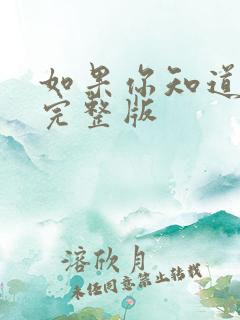 如果你知道
完整版
溶欣月
未经同意禁止转载